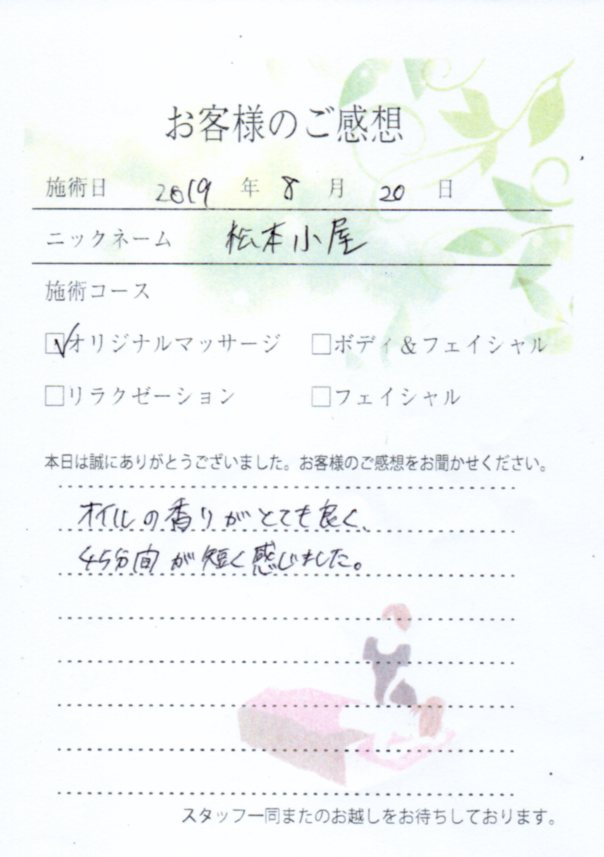 お客様のご感想
施術日 2019 年 8 月 20 日
ニックネーム 松本小屋
施術コース
☑オリジナルマッサージ □ボディ＆フェイシャル
□リラクゼーション □フェイシャル
本日は誠にありがとうございました。お客様のご感想をお聞かせください。
オイルの香りがとても良く、
45分間が短く感じました。
スタッフ一同またのお越しをお待ちしております。